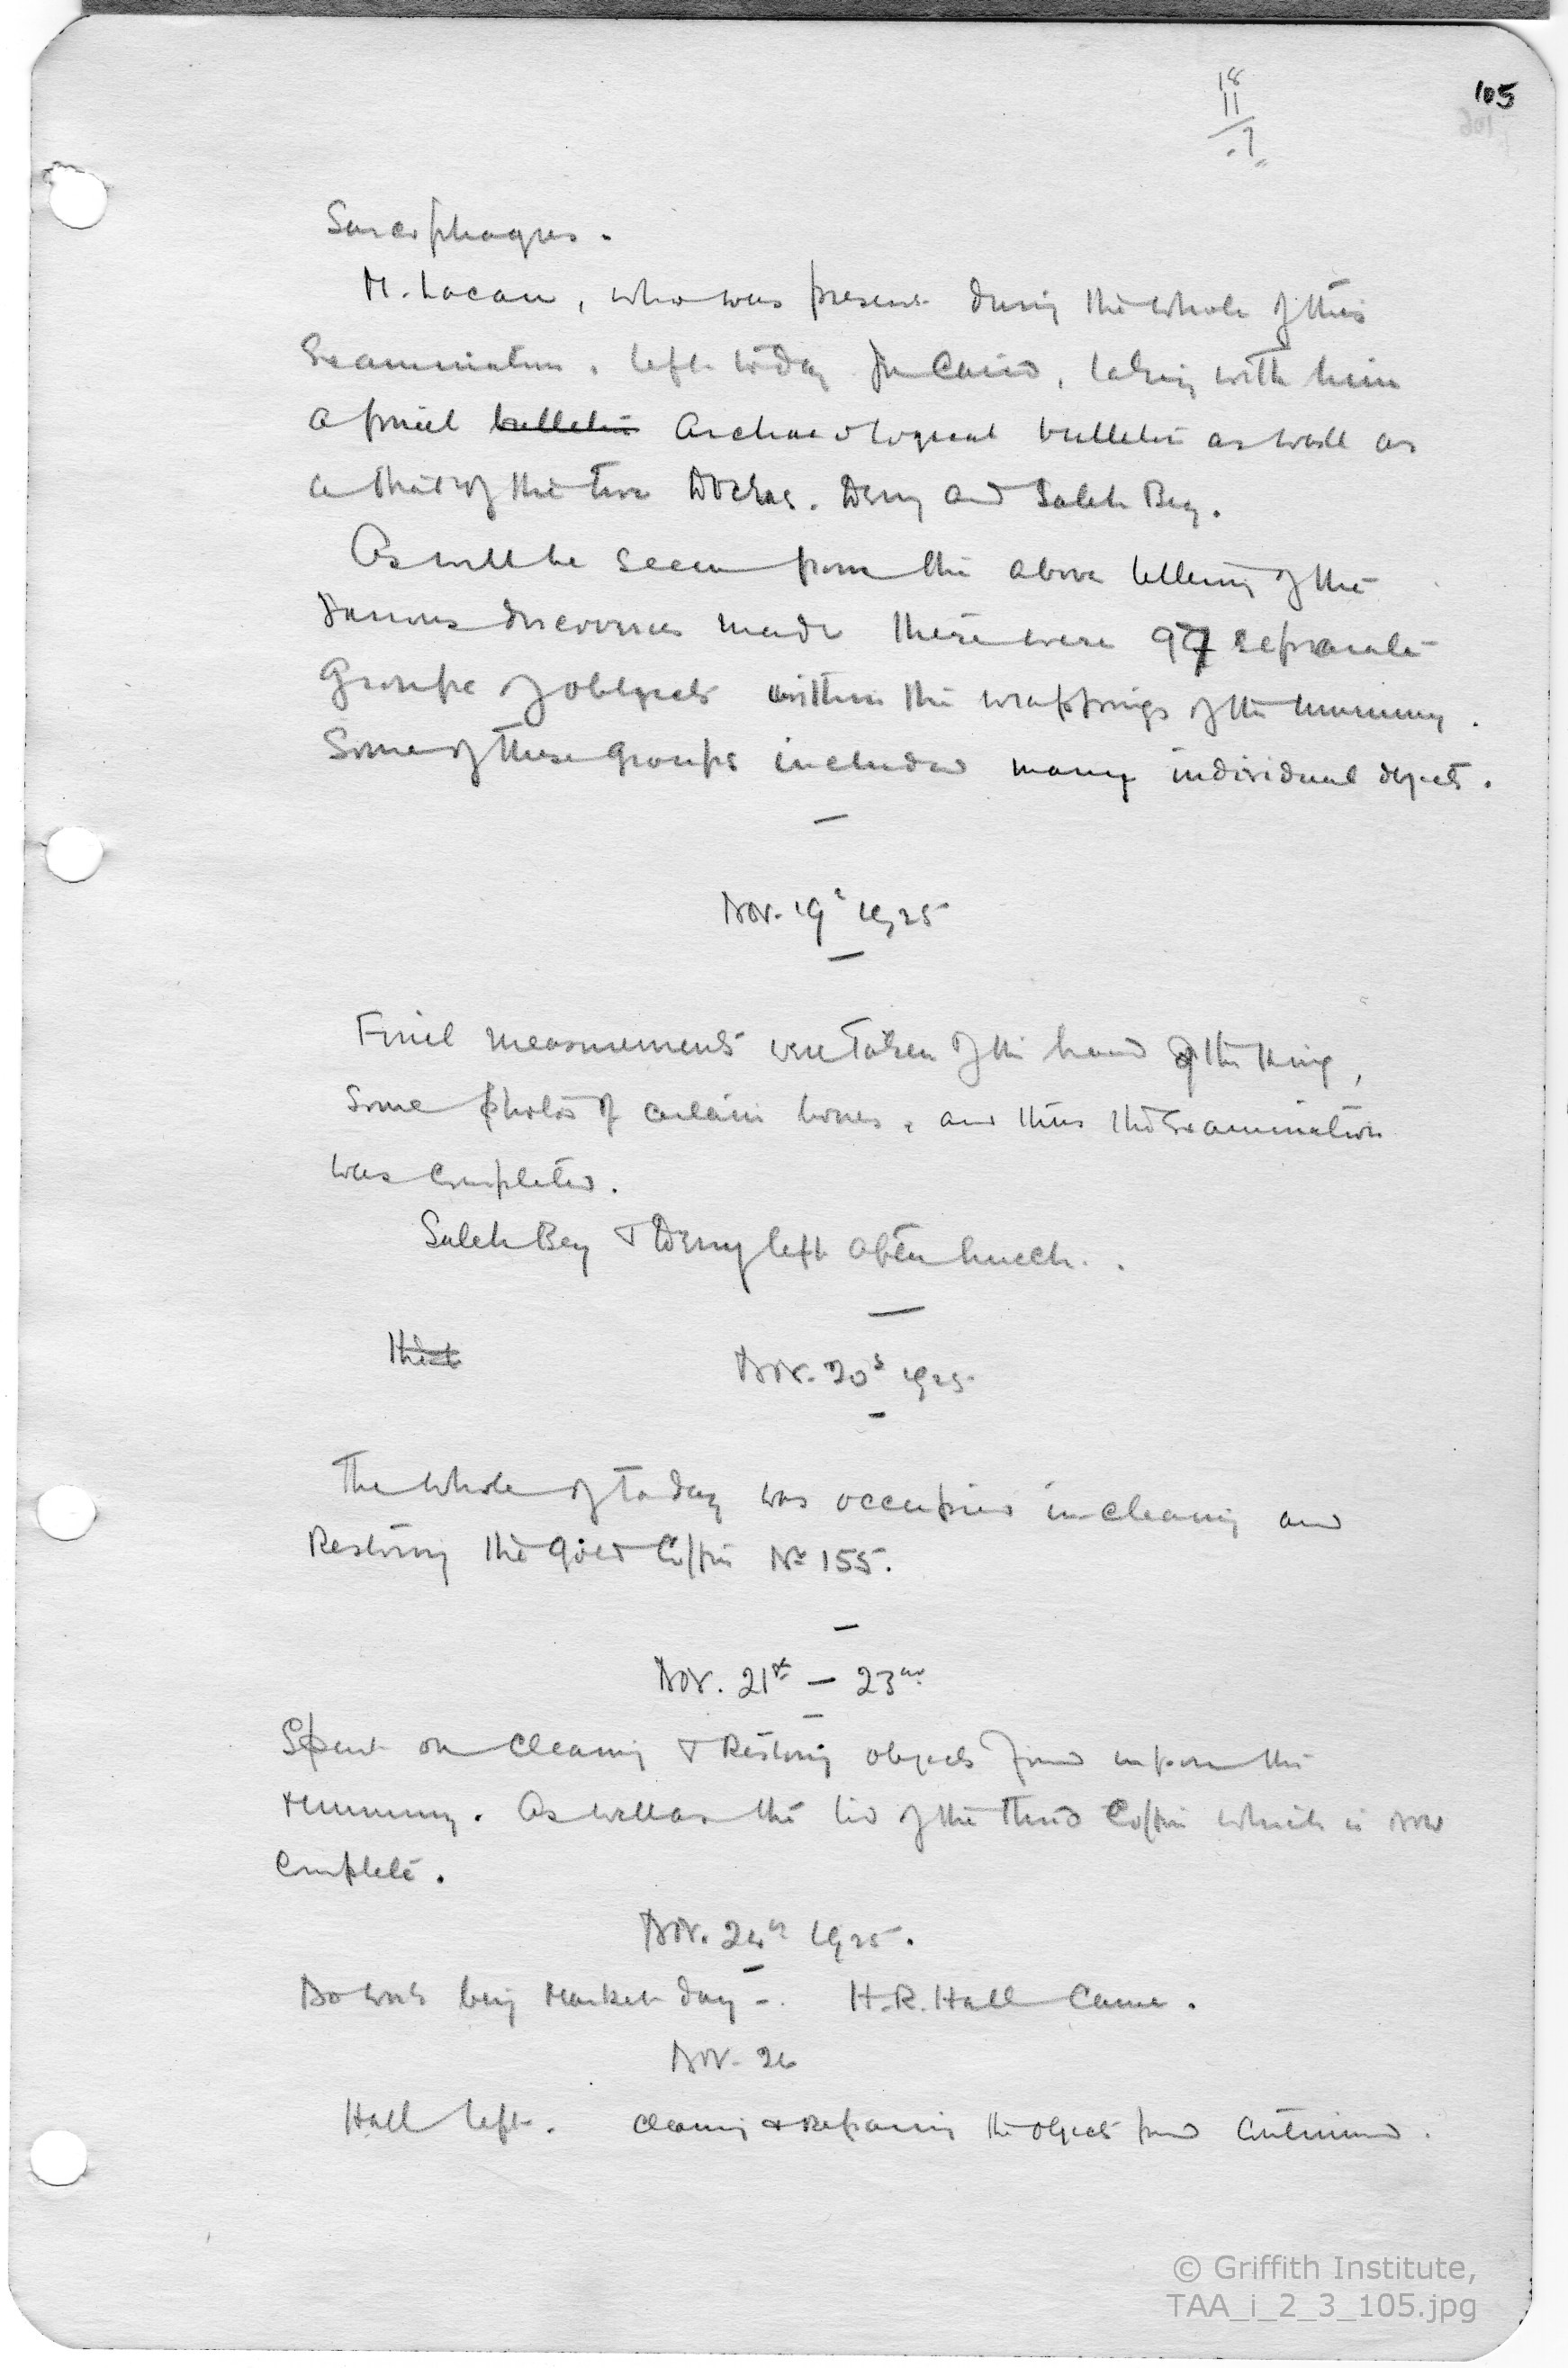 18
11
.7
105
Sarcophagus.
M. Lacau, who was present during the whole of this
Examination, left today for Cairo, taking with him
a ~~bulletin~~ archaeological bulletin as well as
a that of the two Doctors. Derry and Saleh Bey.
As will be seen from the above lettering of the
various discoveries made there were 97 separate
Groups of objects within the wrappings of the mummy.
Some of these groups included many individual objects.
Nov. 19th 1925
Final measurements were taken of the head of the King,
some photos of certain bones, and thus the Examination
was completed.
Saleh Bey & Derry left after lunch.
Nov. 20th 1925
The whole of today was occupied in cleaning and
Restoring the gold Coffin No 155.
Nov. 21st – 23rd
Spent on cleaning & Restoring objects found upon the
mummy. As well as the lid of the third Coffin which is now
Complete.
Nov. 24th 1925.
No work being Market day –. H.R. Hall Came.
Nov. 26
Hall left. Cleaning & Repairing the objects found Continued.
© Griffith Institute,
TAA_i_2_3_105.jpg